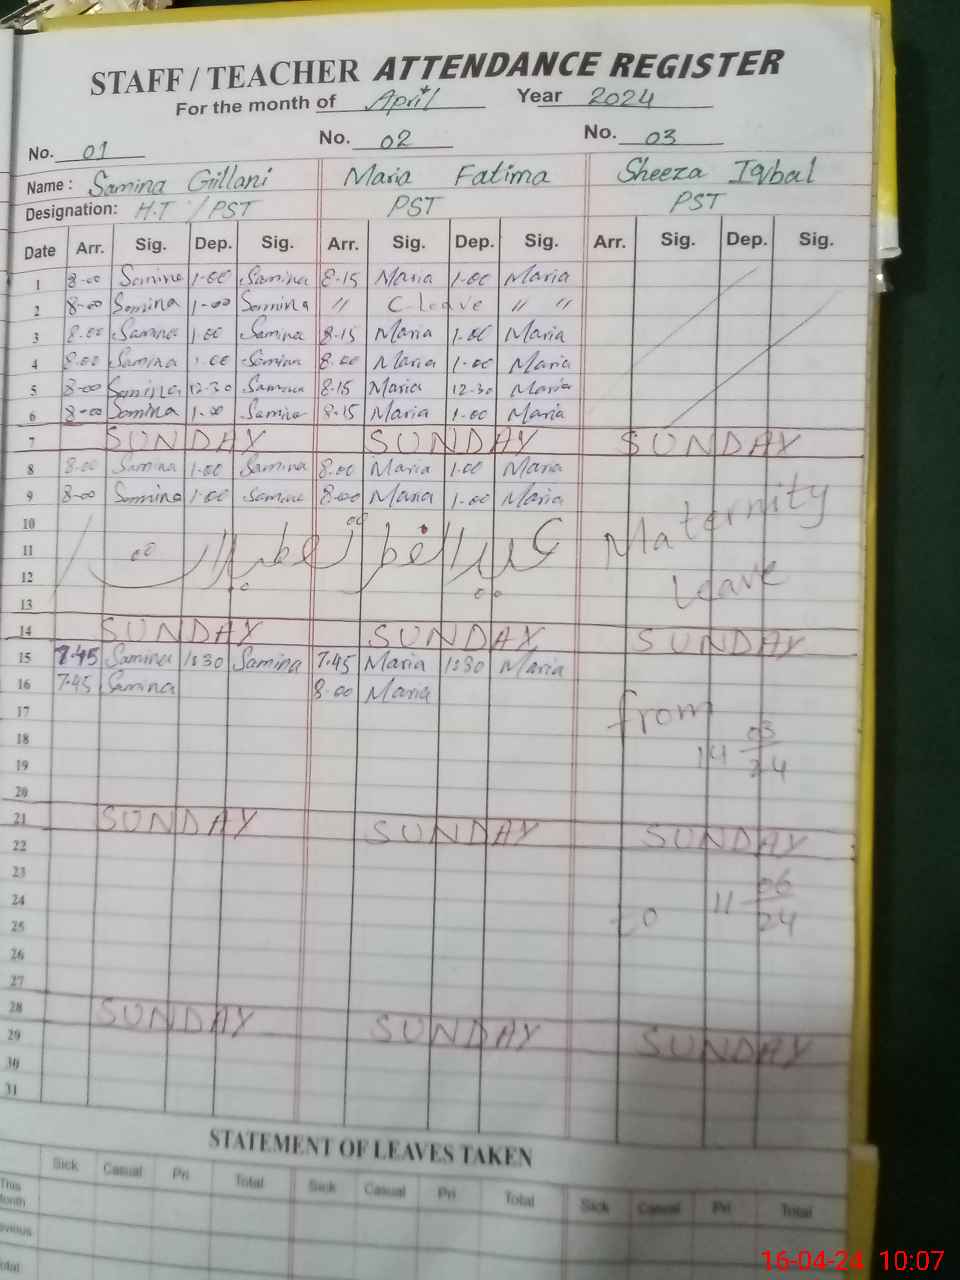 STAFF / TEACHER ATTENDANCE REGISTER
For the month of April Year 2024
No. 01 No. 02 No. 03
Name : Samina Gillani Maria Fatima Sheeza Iqbal
Designation: H.T / PST PST PST
Date Arr. Sig. Dep. Sig. Arr. Sig. Dep. Sig. Arr. Sig. Dep. Sig.
1 8-00 Samina 1-00 Samina 8-15 Maria 1-00 Maria
2 8-00 Samina 1-00 Samina // C leave // //
3 8.00 Samina 1.00 Samina 8-15 Maria 1-00 Maria
4 8.00 Samina 1.00 Samina 8.00 Maria 1-00 Maria
5 8-00 Samina 12-30 Samina 8-15 Maria 12-30 Maria
6 8-00 Samina 1-00 Samina 8-15 Maria 1-00 Maria
7 SUNDAY SUNDAY SUNDAY
8 8.00 Samina 1-00 Samina 8.00 Maria 1-00 Maria
9 8-00 Samina 1-00 Samina 8-00 Maria 1-00 Maria
Maternity
10
11 عید الفطر تعطیلات
12 Leave
13
14 SUNDAY SUNDAY SUNDAY
15 7.45 Samina 1:30 Samina 7.45 Maria 1:30 Maria
16 7.45 Samina 8.00 Maria
17 from
18 14 03
19 24
20
21 SUNDAY SUNDAY SUNDAY
22
23 06
24 to 11 24
25
26
27
28 SUNDAY SUNDAY SUNDAY
29
30
31
STATEMENT OF LEAVES TAKEN
Sick Casual Pri Total Sick Casual Pri Total Sick Casual Pri Total
This
16-04-24 10:07